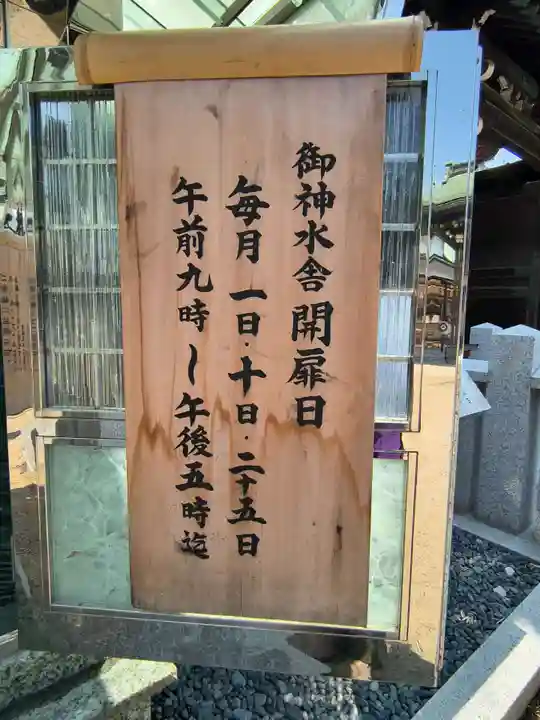 御神水舎開扉日
毎月一日・十日・二十五日
午前九時〜午後五時迄